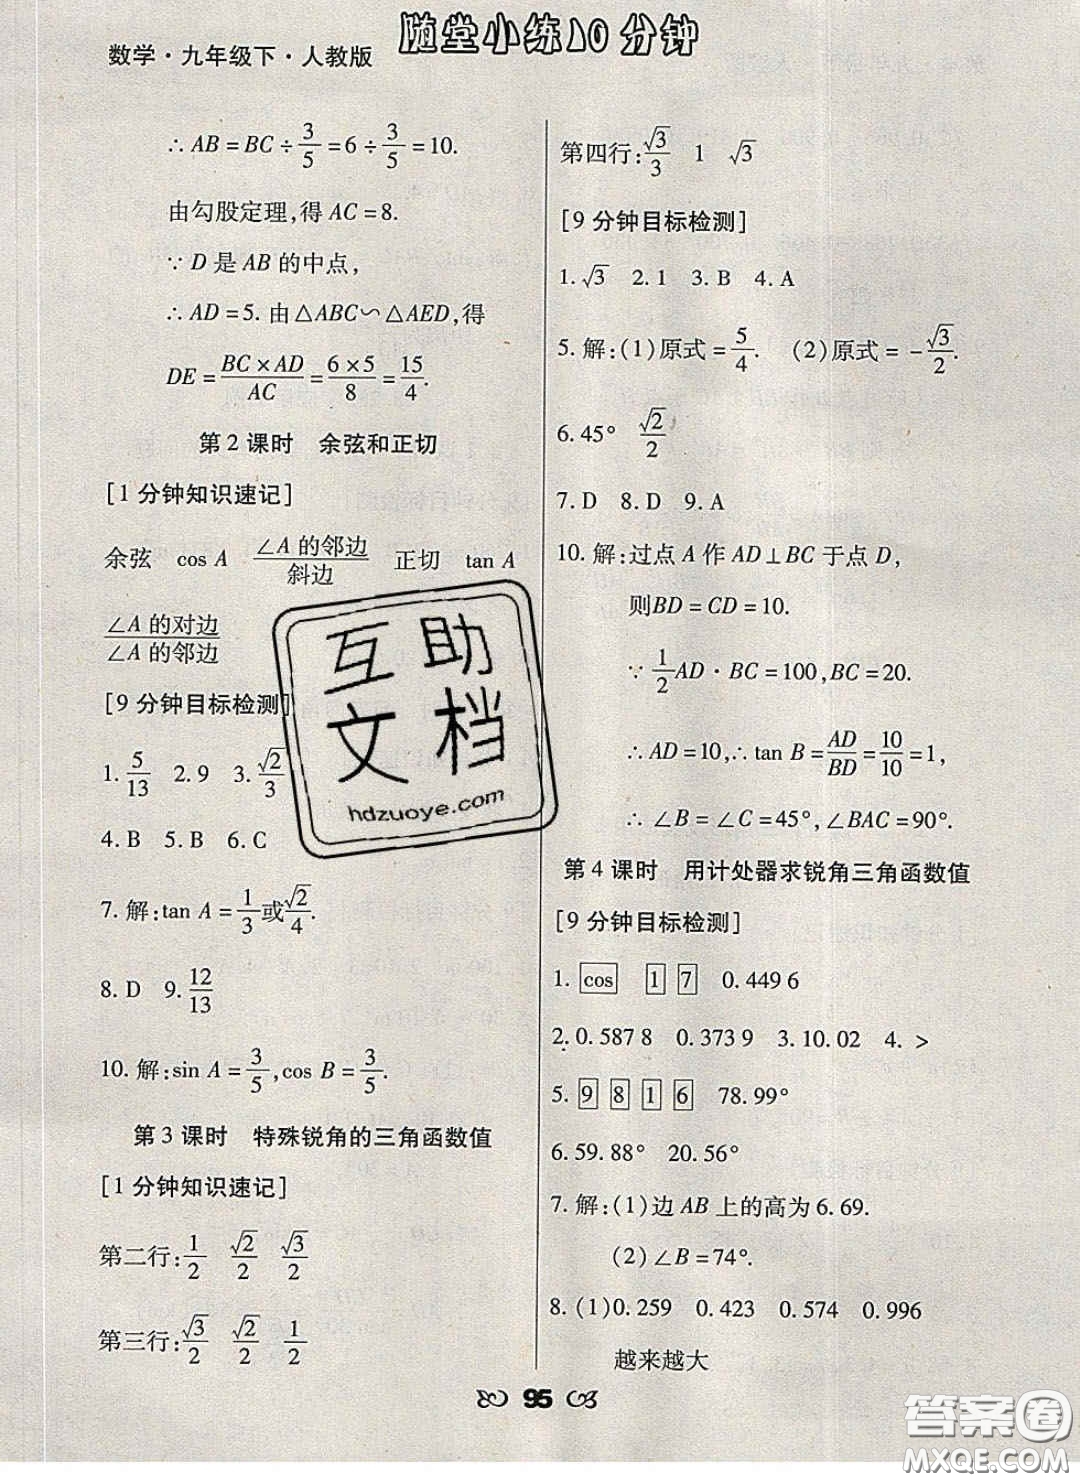 数学·九年级下·人教版
随堂小练10分钟
∴ AB = BC ÷ 3/5 = 6 ÷ 3/5 = 10.
由勾股定理,得 AC = 8.
∵ D 是 AB 的中点,
∴ AD = 5. 由△ABC∽△AED,得
DE = BC × AD/AC = 6 × 5/8 = 15/4.
第 2 课时 余弦和正切
[1 分钟知识速记]
余弦 cos A ∠A 的邻边/斜边 正切 tan A
∠A 的对边/∠A 的邻边
[9 分钟目标检测]
1. 5/13 2. 9 3. √2/3
4. B 5. B 6. C
7. 解:tan A = 1/3 或 √2/4.
8. D 9. 12/13
10. 解:sin A = 3/5, cos B = 3/5.
第 3 课时 特殊锐角的三角函数值
[1 分钟知识速记]
第二行: 1/2 √2/2 √3/2
第三行: √3/2 √2/2 1/2
第四行: √3/3 1 √3
[9 分钟目标检测]
1. √3 2. 1 3. B 4. A
5. 解:(1)原式 = 5/4. (2)原式 = -√3/2.
6. 45° √2/2
7. D 8. D 9. A
10. 解:过点 A 作 AD⊥BC 于点 D,
则BD = CD = 10.
∵ 1/2 AD · BC = 100, BC = 20.
∴ AD = 10, ∴ tan B = AD/BD = 10/10 = 1,
∴ ∠B = ∠C = 45°, ∠BAC = 90°.
第 4 课时 用计处器求锐角三角函数值
[9 分钟目标检测]
1. cos 1 7 0.449 6
2. 0.587 8 0.373 9 3. 10.02 4. >
5. 9 8 1 6 78.99°
6. 59.88° 20.56°
7. 解:(1)边 AB 上的高为 6.69.
(2)∠B = 74°.
8. (1)0.259 0.423 0.574 0.996
越来越大
95
互助
文档
hdzuoye.com
答案圈
MXQE.COM